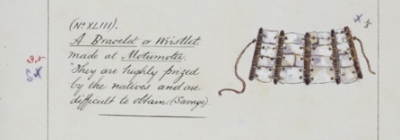 (No XLIII).
A Bracelet or Wristlet
made at Motumotu.
They are highly prized
by the natives and are
difficult to obtain (Savage)